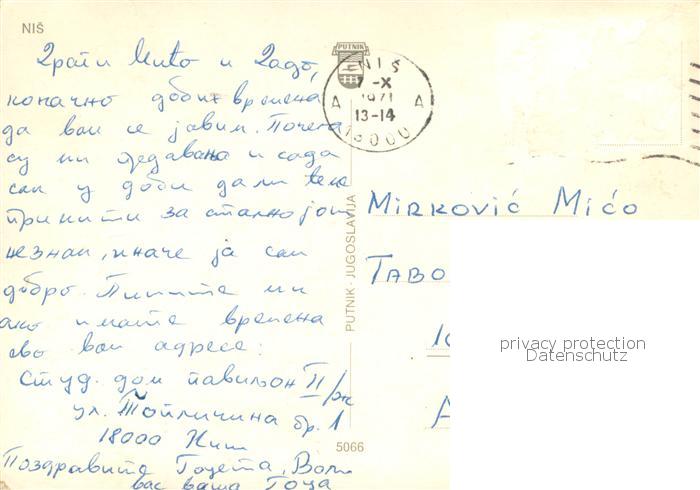 NIŠ
Драги Мићо и Радо,
коначно добих времена
да вам се јавим. Почела
су ми предавања и сада
сам у доби да ли ће ме
примити за стално још
незнам, иначе ја сам
добро. Пишите ми
ако имате времена
ево вам адресе:
Студ. дом павиљон II/
ул. Топличина бр. 1
18000 Ниш
Поздравите
вас ваша Гоца
PUTNIK
NIŠ
7-X
1971
13-14
A A
18000
PUTNIK - JUGOSLAVIJA
5066
MIRKOVIĆ MIĆO
TABO
privacy protection
Datenschutz